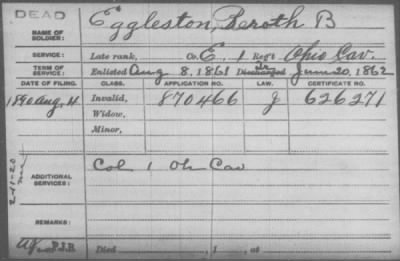 DEAD
NAME OF SOLDIER: Eggleston, Beroth B
SERVICE: Late rank, Co. E, 1 Reg't Ohio Cav.
TERM OF SERVICE: Enlisted Aug 8, 1861 Discharged Jun 20, 1862
DATE OF FILING. CLASS. APPLICATION NO. LAW. CERTIFICATE NO.
1890 Aug, 4 Invalid, 870466 J 626271
Widow,
Minor,
ADDITIONAL SERVICES: Col 1 Oh Cav
2-11-20
REMARKS:
P.I.B Died , 1 , at